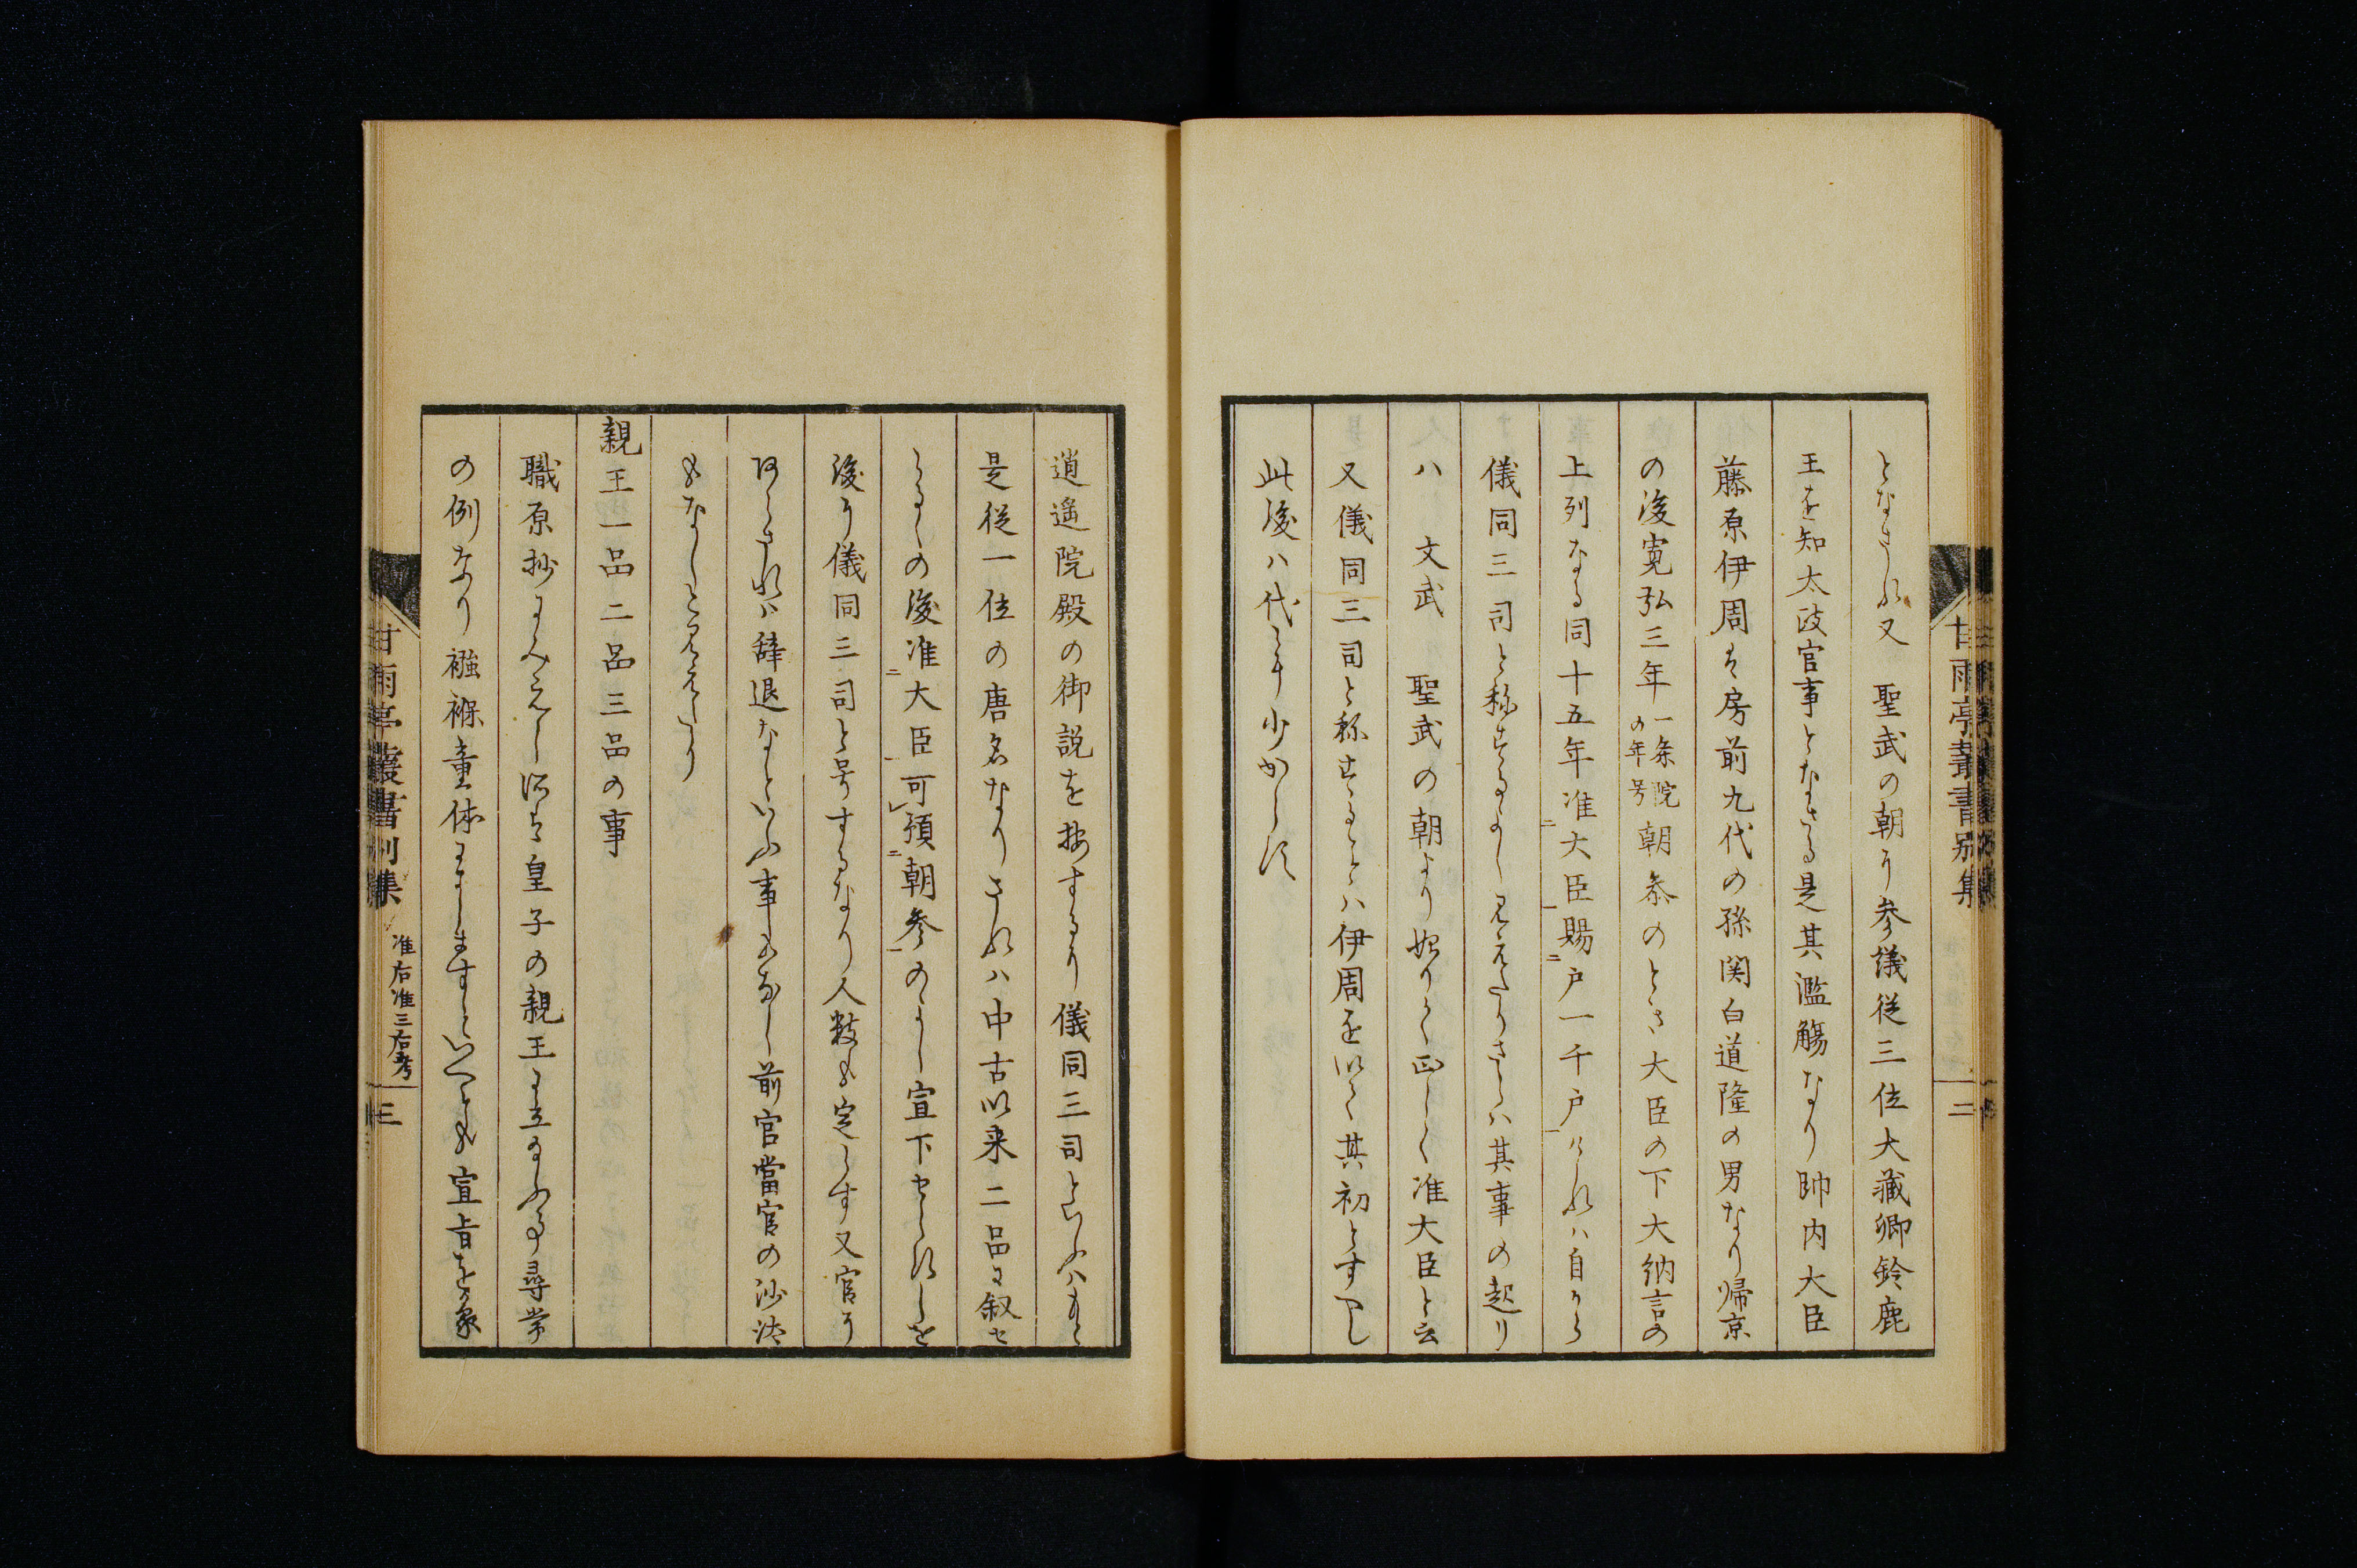 となされ又　聖武の朝に参議従三位大蔵卿鈴鹿
王を知太政官事となさる是其濫觴なり帥内大臣
藤原伊周は房前九代の孫関白道隆の男なり帰京
の後寛弘三年一条院の年号朝参のとき大臣の下大納言の
上列なる同十五年准二大臣一賜二戸一千戸一けれハ自から
儀同三司と称するよし見えたりさらハ其事の起り
ハ　文武　聖武の朝より始りて正しく准大臣と云
又儀同三司と称することハ伊周を以て其初とすへし
此後ハ代々少からす
逍遥院殿の御説を按するに儀同三司といふハもと
是従一位の唐名なりされハ中古以来二品に叙せ
らるゝの後准二大臣一可レ預二朝参一のよし宣下せられしを
後に儀同三司と号するなり人数も定らす又官に
あらされハ辞退なといふ事もなし前官當官の沙汰
もなしと見えたり
親王一品二品三品の事
職原抄にみえし所は皇子の親王に立給ふ事尋常
の例なり襁褓童体にましますといへとも宣旨を蒙
甘雨亭叢書別集
二
甘雨亭叢書別集
准后准三后考
三